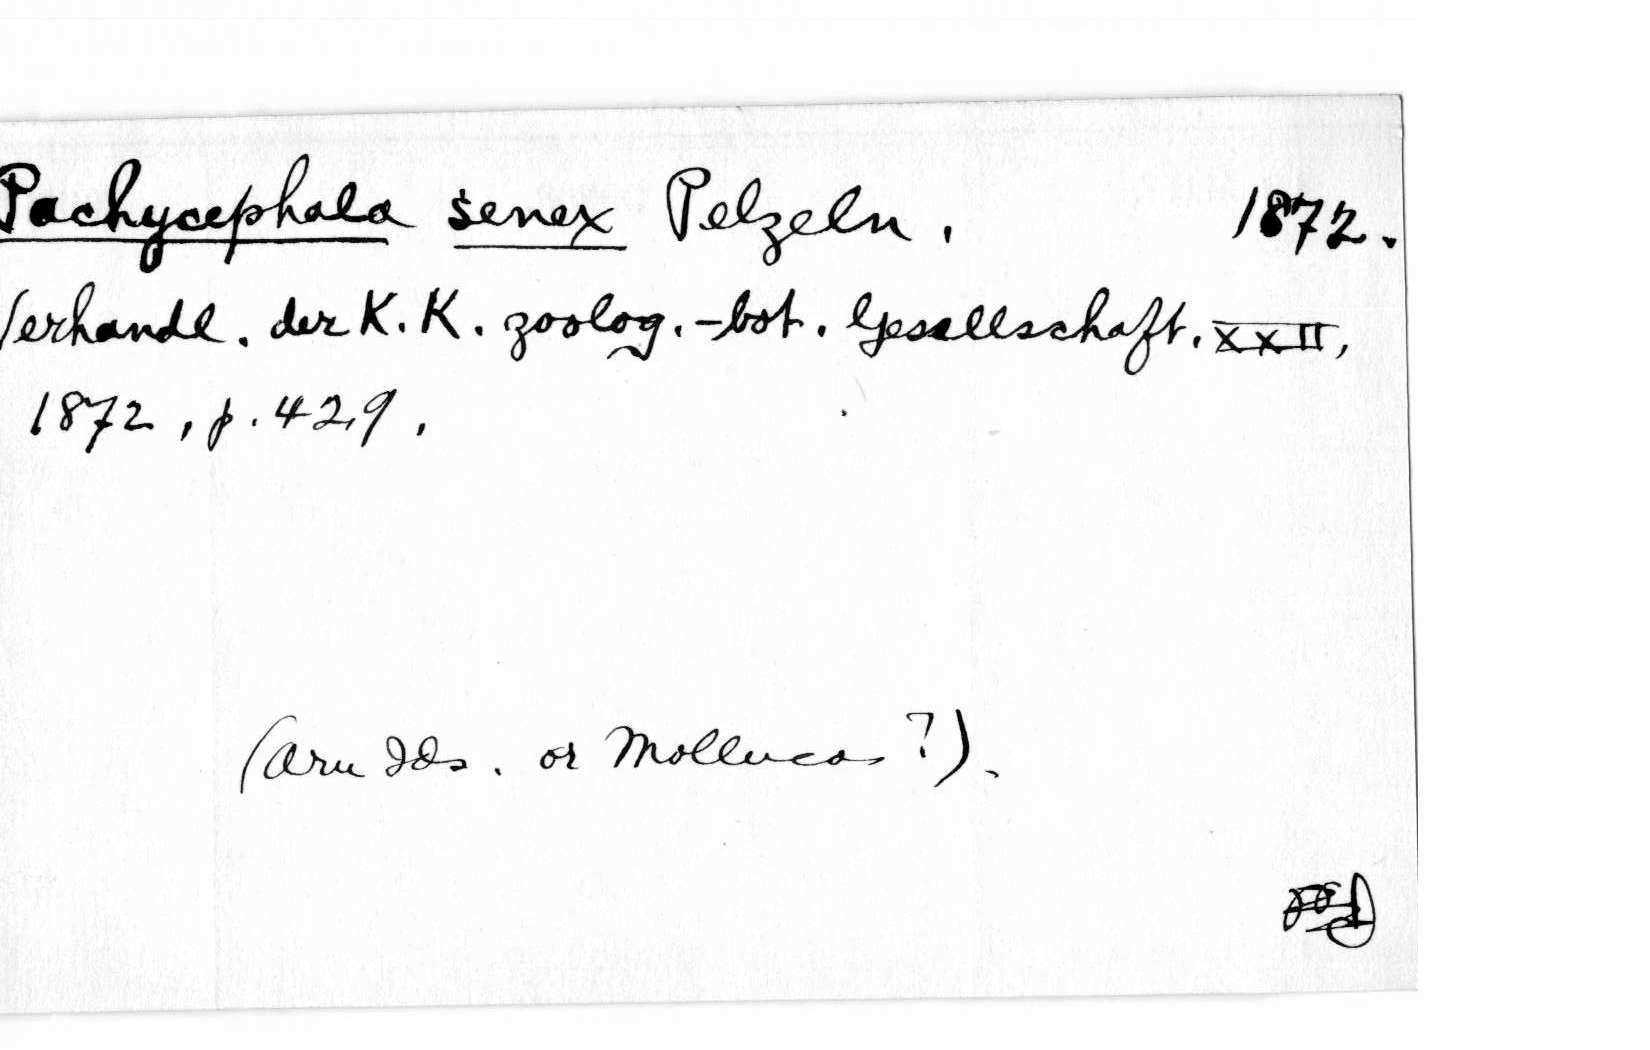 Pachycephala senex Pelzeln. 1872.
Verhandl. der K. K. zoolog.-bot. Gesellschaft. XXII,
1872, p. 429.
(Aru Ids. or Mollucas?).